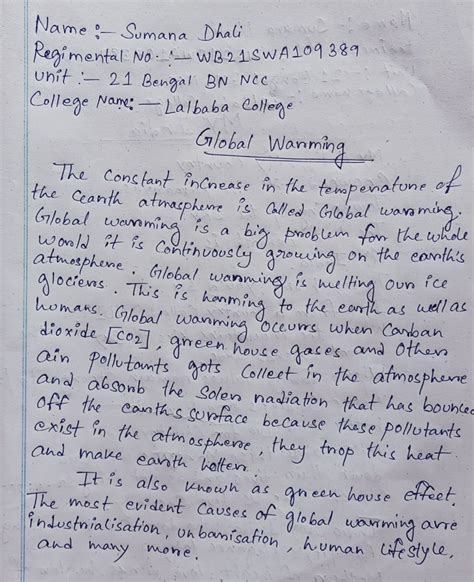 Name :- Sumana Dhali
Regimental No :- WB21SWA109389
unit :- 21 Bengal BN NCC
College Name:- Lalbaba College
Global Warming
The Constant increase in the temperature of
the Ceanth atmosphere is Called Global warming.
Global warming is a big problem for the whole
world it is Continuously growing on the earth's
atmosphere. Global warming is melting our ice
glociers. This is harming to the earth as well as
humans. Global warming Occurs when Carban
dioxide [CO2], green house gases and Other
ain pollutants gots Collect in the atmosphere
and absorb the Solen radiation that has bounced
off the earth's surface because these pollutants
exist in the atmosphere, they trop this heat
and make earth hotter.
It is also known as green house effect.
The most evident Causes of global warming arre
industrialisation, urbanisation, human lifestyle,
and many more.